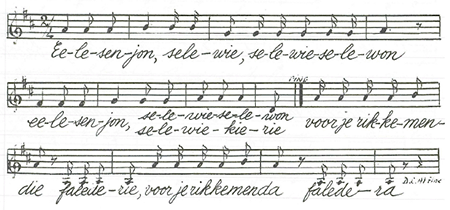 Ee-le-sen-jon, sele-wie, se-le-wie-se-le-won
FINE
ee-le-sen-jon, se-le-wie-se-le-won voor je rik-ke-men-
se-le-wie-kie-rie
die falede-rie, voor je rikkemenda falede-ra